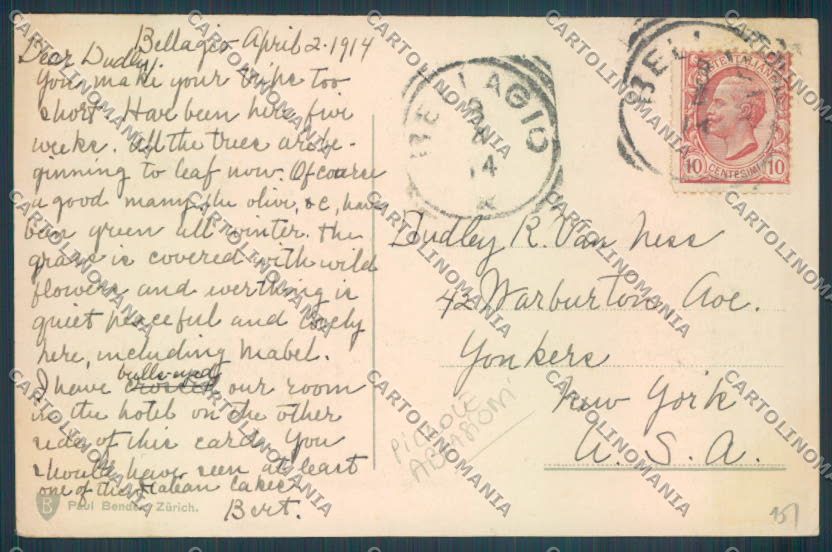 Bellagio April 2. 1914
Dear Dudley,
You make your trips too
short. Have been here five
weeks. All the trees are be-
ginning to leaf now. Of course
a good many, the olive, &c, have
been green all winter. The
grass is covered with wild
flowers and everthing is
quiet peaceful and lovely
here, including Mabel.
bulls-eyed
I have our room
in the hotel on the other
side of this card. You
should have seen at least
one of the Italian lakes
Bert.
B Paul Bender, Zürich.
BELLAGIO
14
BELL
POSTE ITALIANE
10 CENTESIMI 10
Dudley R. Van Ness
42 Warburton Ave.
Yonkers
New York
U. S. A.
PICCOLE
CARTOLINOMANIA